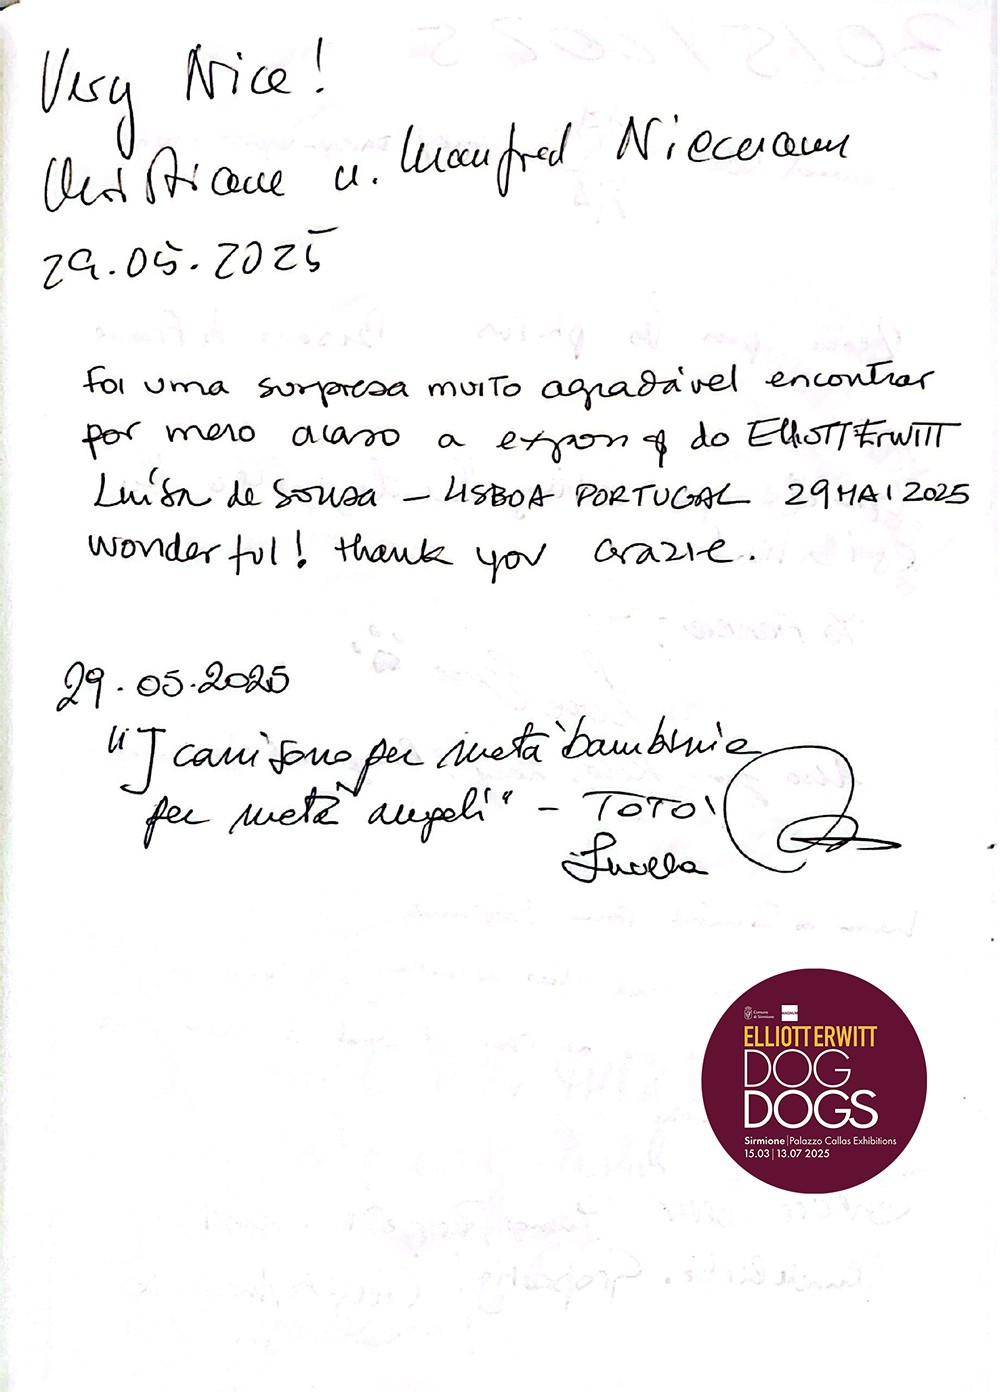 Very Nice!
Christiane u. Manfred Niemann
29.05.2025
Foi uma surpresa muito agradável encontrar
por mero acaso a expon do ELLIOTT ERWITT
Luísa de Sousa – LISBOA PORTUGAL 29 MAI 2025
Wonderful! Thank you Grazie.
29.05.2025
"I cani sono per metà bambini e
per metà angeli" – TOTO'
Comune
di Sirmione
MAGNUM
ELLIOTT ERWITT
DOG
DOGS
Sirmione | Palazzo Callas Exhibitions
15.03 | 13.07 2025